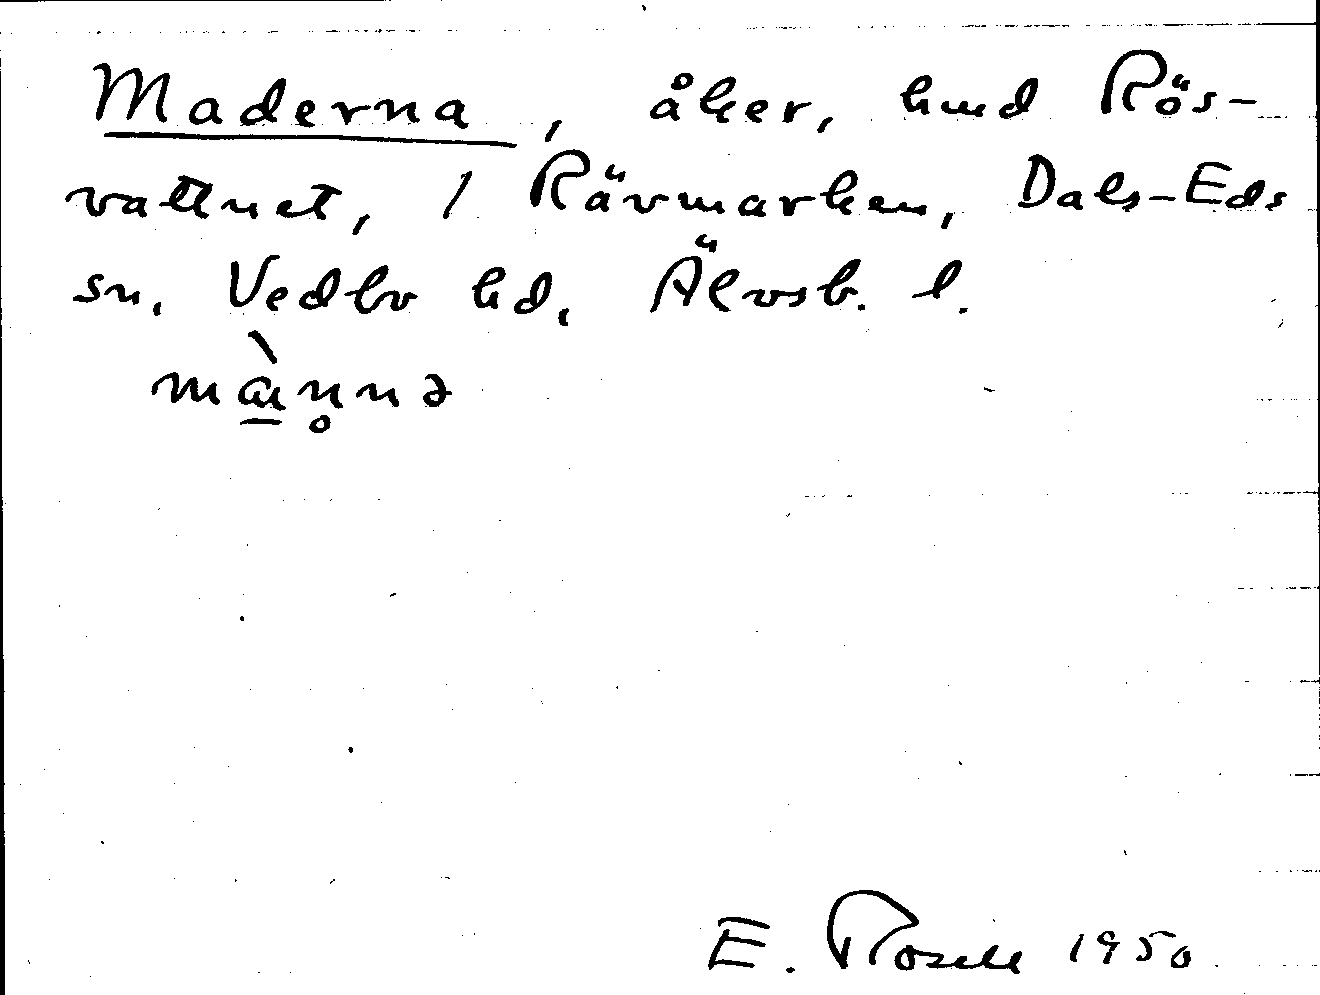 Maderna, åker, hmd Rös-
vattnet, 1 Rävmarken, Dals-Eds
sn. Vedbo hd. Älvsb. l.
mà̱n̥nə
E. Rosell 1950